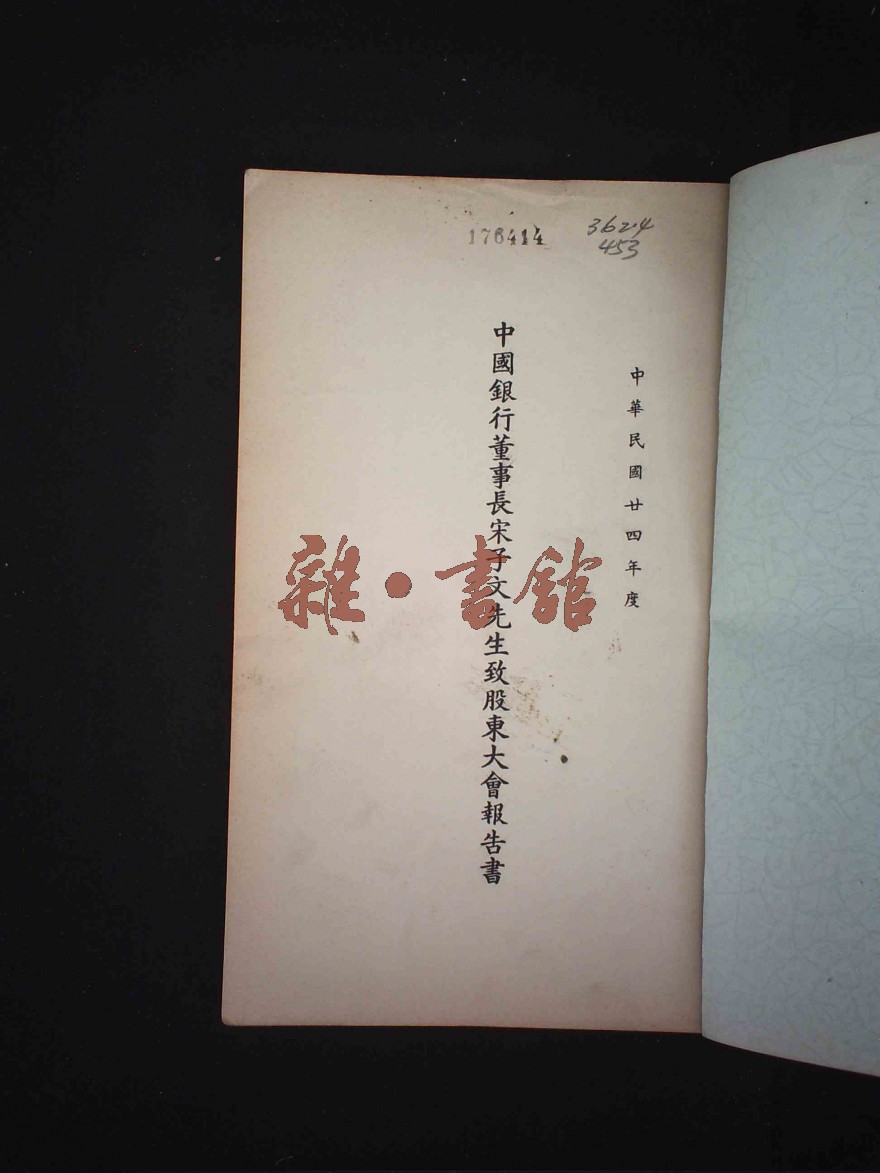 176414
362.4
453
中華民國廿四年度
中國銀行董事長宋子文先生致股東大會報告書
雜·書館